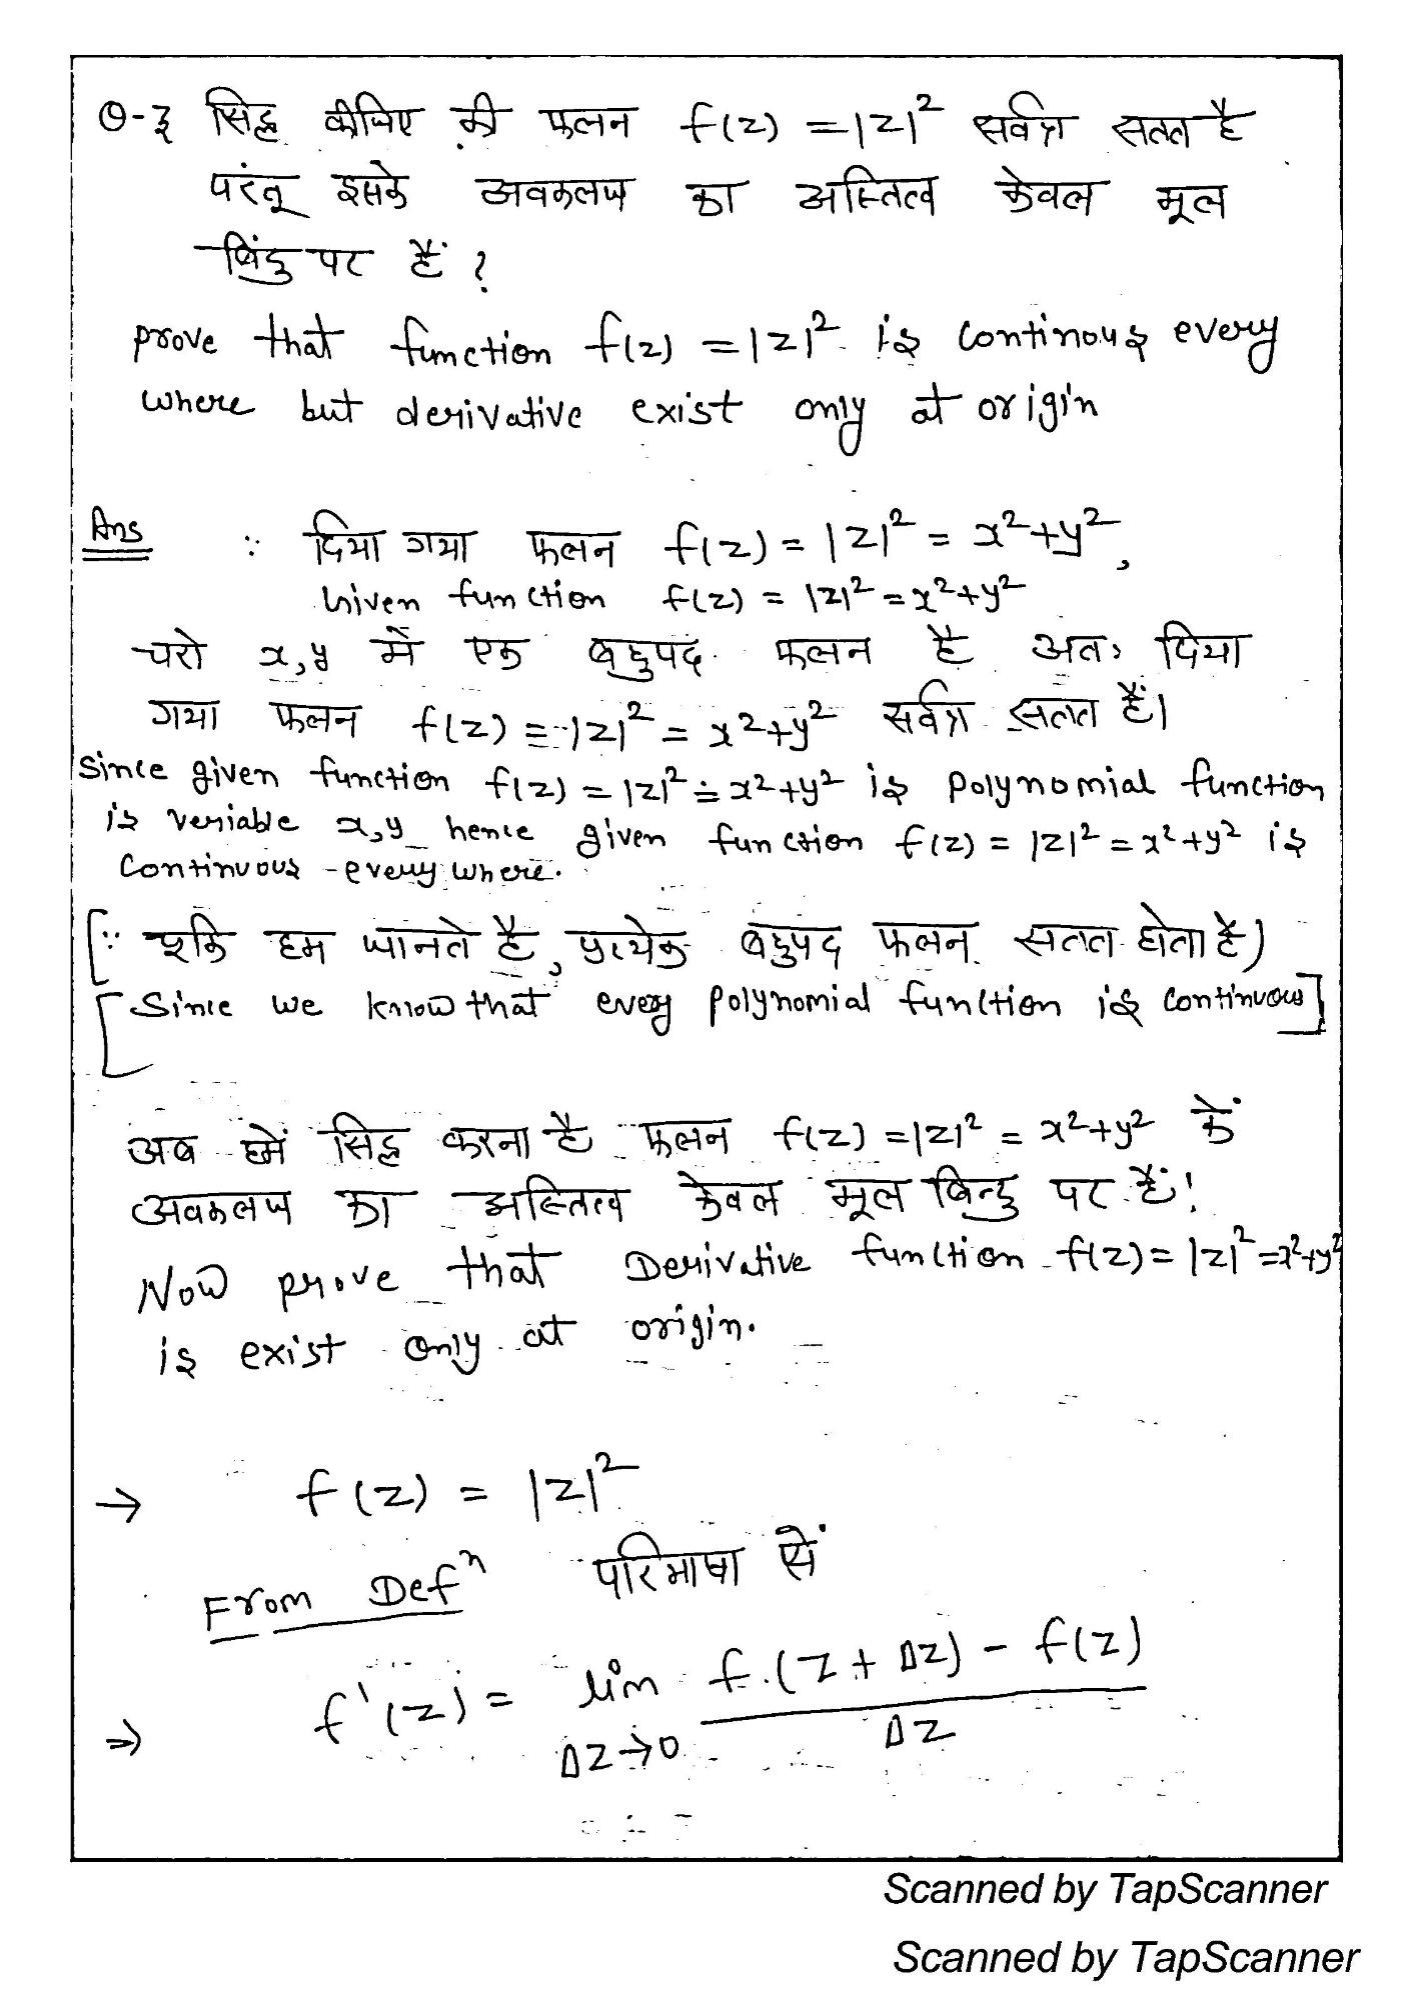 Q-3 सिद्ध कीजिए की फलन f(z) = |z|² सर्वत्र सतत है
परंतू इसके अवकलज का अस्तित्व केवल मूल
बिंदु पर हैं ?
prove that function f(z) = |z|² is continous every
where but derivative exist only at origin
Ans ∵ दिया गया फलन f(z) = |z|² = x²+y²,
Given function f(z) = |z|² = x²+y²
चरो x,y में एक बहुपद फलन है अतः दिया
गया फलन f(z) = |z|² = x²+y² सर्वत्र सतत हैं।
Since given function f(z) = |z|² = x²+y² is polynomial function
is veriable x,y hence given function f(z) = |z|² = x²+y² is
continuous everywhere.
[∵ हम जानते है, प्रत्येक बहुपद फलन सतत होता है)
[Since we know that every polynomial function is continuous]
अब हमें सिद्ध करना है फलन f(z) = |z|² = x²+y² कें
अवकलज का अस्तित्व केवल मूल बिन्दु पर हैं!
Now prove that Derivative function f(z) = |z|² = x²+y²
is exist only at origin.
→ f(z) = |z|²
From Defⁿ परिभाषा सें
⇒ f'(z) = lim Δz→0 f(z + Δz) - f(z) / Δz
Scanned by TapScanner
Scanned by TapScanner